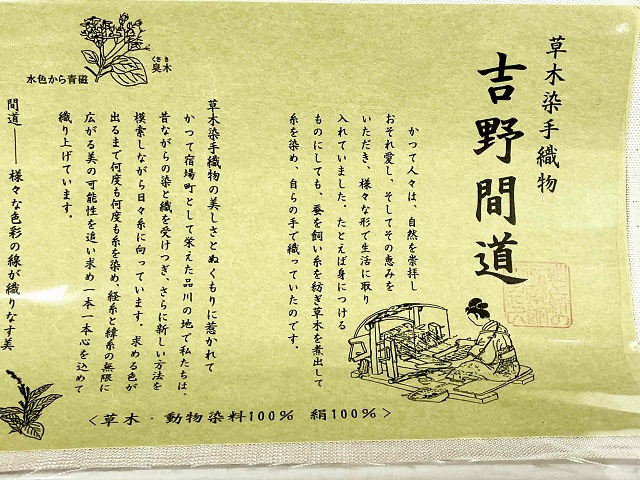 草木染手織物
吉野間道
かつて人々は、自然を崇拝し
おそれ愛し、そしてその恵みを
いただき、様々な形で生活に取り
入れていました。たとえば身につける
ものにしても、蚕を飼い糸を紡ぎ草木を煮出して
糸を染め、自らの手で織っていたのです。
草木染手織物の美しさとぬくもりに惹かれて
かつて宿場町として栄えた品川の地で私たちは、
昔ながらの染と織を受けつぎ、さらに新しい方法を
模索しながら日々糸に向っています。求める色が
出るまで何度も何度も糸を染め、経糸と緯糸の無限に
広がる美の可能性を追い求め一本一本心を込めて
織り上げています。
間道――様々な色彩の線が織りなす美
くさき
臭木
水色から青磁
<草木・動物染料100% 絹100%>